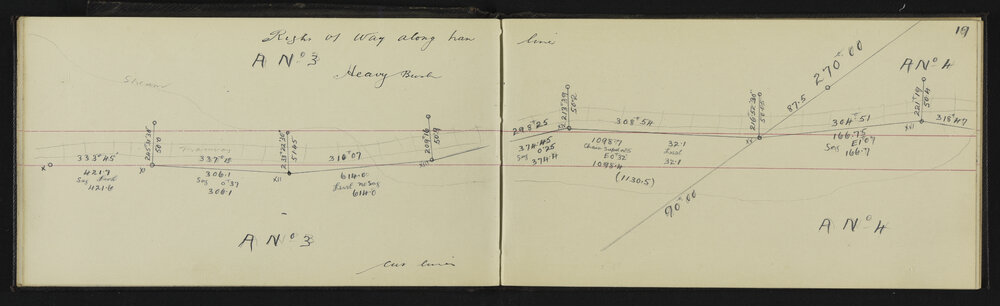 19
Right of Way along tran line
A Nº 3
Heavy Bush
Stream
Tramway
X
333° 45'
421.7
Sag Level
421.6
XI
205° 36' 30"
50.0
337° 10
306.1
Sag 0° 37
306.1
XII
233° 22' 30"
51.45
316° 07
614.0
Level no Sag
614.0
XIII
209° 16
50.9
A Nº 3
Cut lines
298° 25
374.45
Sag 0° 25
374.4
213° 39
50.2
308° 54
1098.7
Chain Supports
E 0° 32'
1098.4
32.1
Level
32.1
(1130.5)
XV
216° 52' 30"
50.05
87.5
270° 00
90° 00
A Nº 4
304° 51
166.75
E 1° 07
166.7
XVI
221° 19
50.4
318° 47
A Nº 4